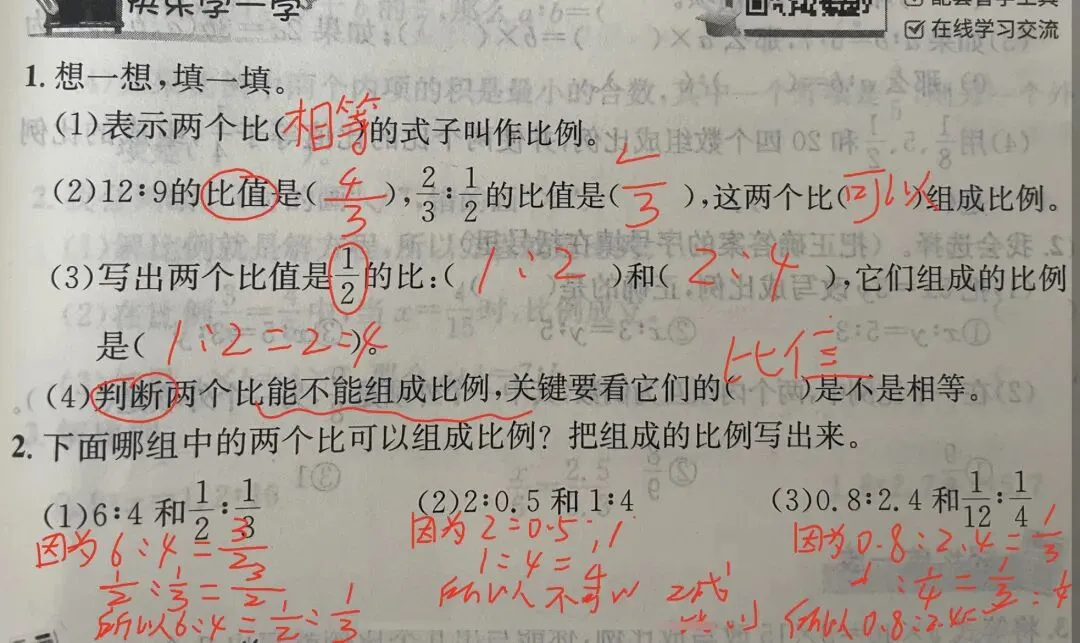 快乐学一学
在线学习交流
1. 想一想,填一填。
(1)表示两个比(相等)的式子叫作比例。
(2)12∶9的比值是(4/3),2/3∶1/2的比值是( /3),这两个比(可以)组成比例。
(3)写出两个比值是1/2的比:(1∶2)和(2∶4),它们组成的比例
是(1∶2=2=4)。
(4)判断两个比能不能组成比例,关键要看它们的(比值)是不是相等。
2. 下面哪组中的两个比可以组成比例?把组成的比例写出来。
(1)6∶4和1/2∶1/3 (2)2∶0.5和1∶4 (3)0.8∶2.4和1/12∶1/4
因为6∶4=3/2 因为2=0.5 因为0.8∶2.4=1/3
1/2∶1/3=3/2 1∶4= ∶1/4=1/3
所以6∶4=1/2∶1/3 所以不可以 所以0.8∶2.4=